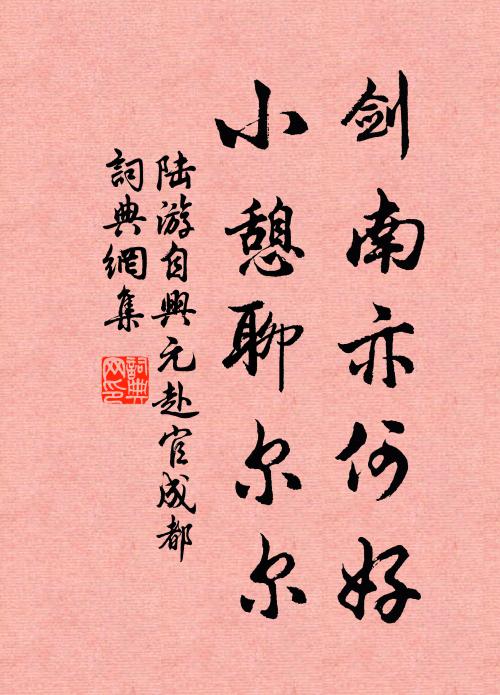 剑南亦何好
小憩聊尔尔
陆游自興元赴官成都
詞典網集
詞典网印